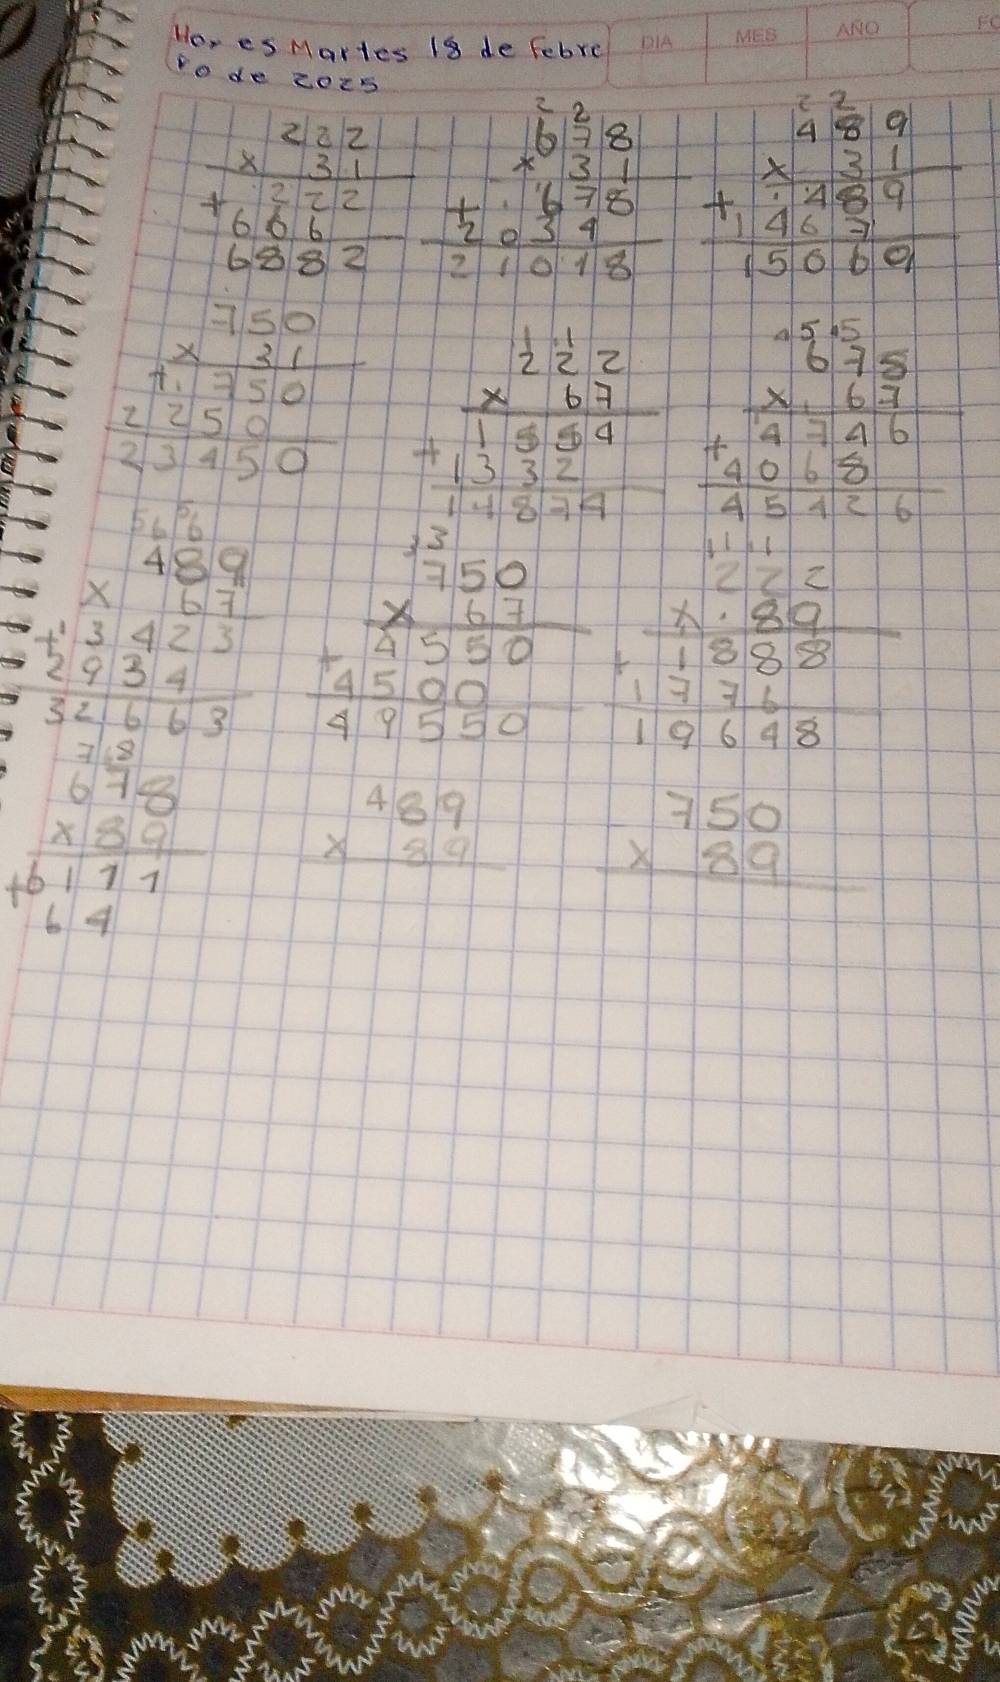 Hoy es Martes 18 de Febre
ro de 2025
DIA MES AÑO
222
x 31
+ 222
666
6882
2 2
678
x 31
+ 678
2034
21018
2 2
489
x 31
+ 489
1467
15060
750
x 31
+ 750
2250
23450
1 1
222
x 67
1554
+ 1332
14874
5 5
678
x 67
+ 4746
4068
45426
489
x 67
+ 3423
2934
32663
3
750
x 67
+ 4550
4500
49550
11 1
222
x 89
+ 1888
1776
19648
7 8
678
x 89
+ 6111
64
489
x 89
750
x 89